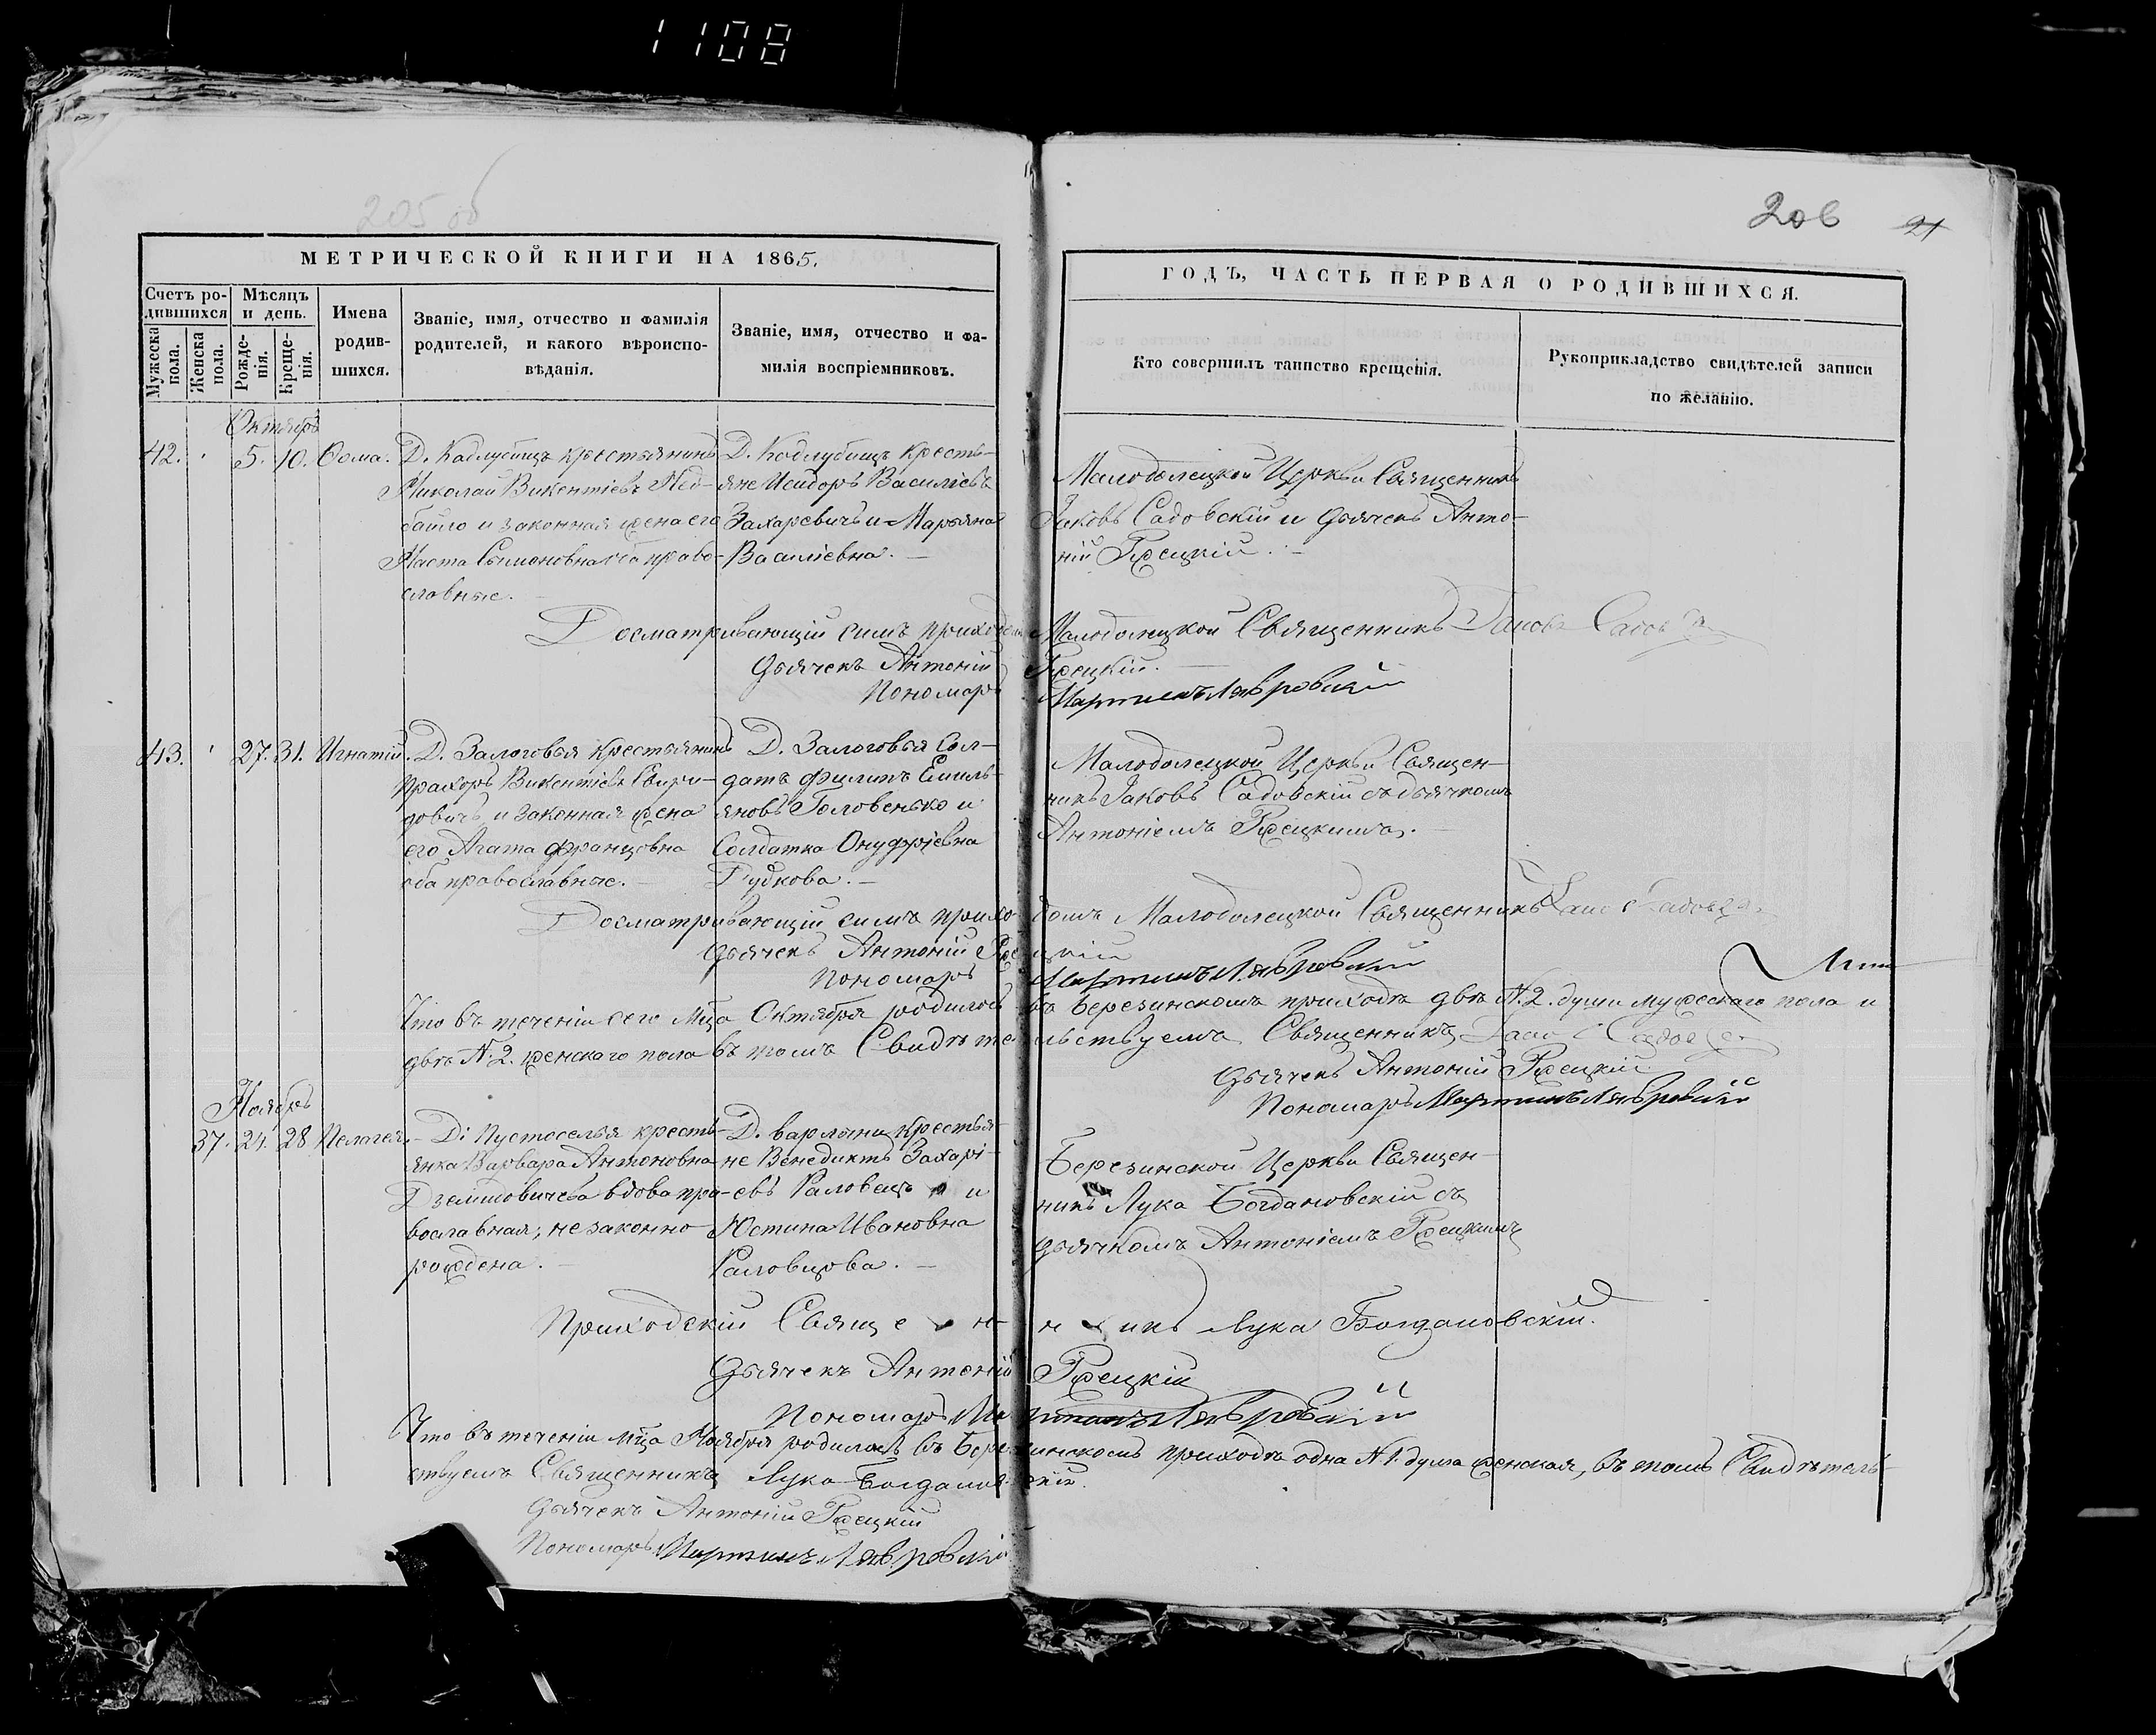 1108
205 об
206 21
МЕТРИЧЕСКОЙ КНИГИ НА 1865.
Счетъ ро-
дившихся
Мѣсяцъ
и день.
Мужеска
пола.
Женска
пола.
Рожде-
нія.
Креще-
нія.
Имена
родив-
шихся.
Званіе, имя, отчество и фамилія
родителей, и какого вѣроиспо-
вѣданія.
Званіе, имя, отчество и фа-
милія воспріемниковъ.
ГОДЪ, ЧАСТЬ ПЕРВАЯ О РОДИВШИХСЯ.
Кто совершилъ таинство крещенія.
Рукоприкладство свидѣтелей записи
по желанію.
Октябрь
42. 5. 10. Ѳома.
Д. Кадлубищъ крестьянинъ
Николай Викентіевъ Нед-
байло и законная жена его
Наста Сымоновна оба право-
славные.
Д. Кодлубищъ Кресть-
яне Исидоръ Василіевъ
Захаревичъ и Марьяна
Василіевна.
Малодолецкой Церкви Священникъ
Іаковъ Садовскій и дьячекъ Анто-
ній Грецкій.
Досматривающій симъ приходомъ Малодолецкой Священникъ Іаковъ
Дьячекъ Антоній Грецкій.
Пономарь Мартинъ Лявровскій
43. 27. 31. Игнатій.
Д. Залоговья Крестьянинъ
Прахоръ Викентіевъ Свири-
довичъ и законная жена
его Агата Францовна
оба православные.
Д. Залоговья Сол-
датъ Филипъ Емиль-
яновъ Головенько и
Солдатка Онуфріевна
Рудкова.
Малодолецкой Церкви Священ-
никъ Іаковъ Садовскій съ дьячкомъ
Антоніемъ Грецкимъ.
Досматривающій симъ приходомъ Малодолецкой Священникъ
Дьячекъ Антоній Грецкій
Пономарь Мартинъ Лявровскій
Что въ теченіи сего Мца Октября родилось въ Березинскомъ приходѣ двѣ N. 2. души мужескаго пола и
двѣ N. 2. женскаго пола въ томъ Свидѣтельствуемъ Священникъ
Дьячекъ Антоній Грецкій
Пономарь Мартинъ Лявровскій
Ноябрь
37. 24. 28 Пелагея.
Д. Пустоселья кресть-
янка Варвара Антоновна
вдова пра-
вославная; незаконно
рождена.
Д. Варлыни Крестья-
не Венедиктъ Захарі-
евъ Раловецъ и
Юстина Ивановна
Раловцова.
Березинской Церкви Священ-
никъ Лука Богдановскій съ
дьячкомъ Антоніемъ Грецкимъ
Приходскій Священникъ Лука Богдановскій.
Дьячекъ Антоній Грецкій
Пономарь Мартинъ Лявровскій
Что въ теченіи Мца Ноября родилась въ Березинскомъ приходѣ одна N 1. душа женская, въ томъ Свидѣтель-
ствуемъ Священникъ Лука Богдановскій.
Дьячекъ Антоній Грецкій
Пономарь Мартинъ Лявровскій